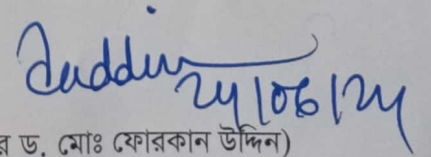 Auddin
24/06/24
ড. মোঃ ফোরকান উদ্দিন)